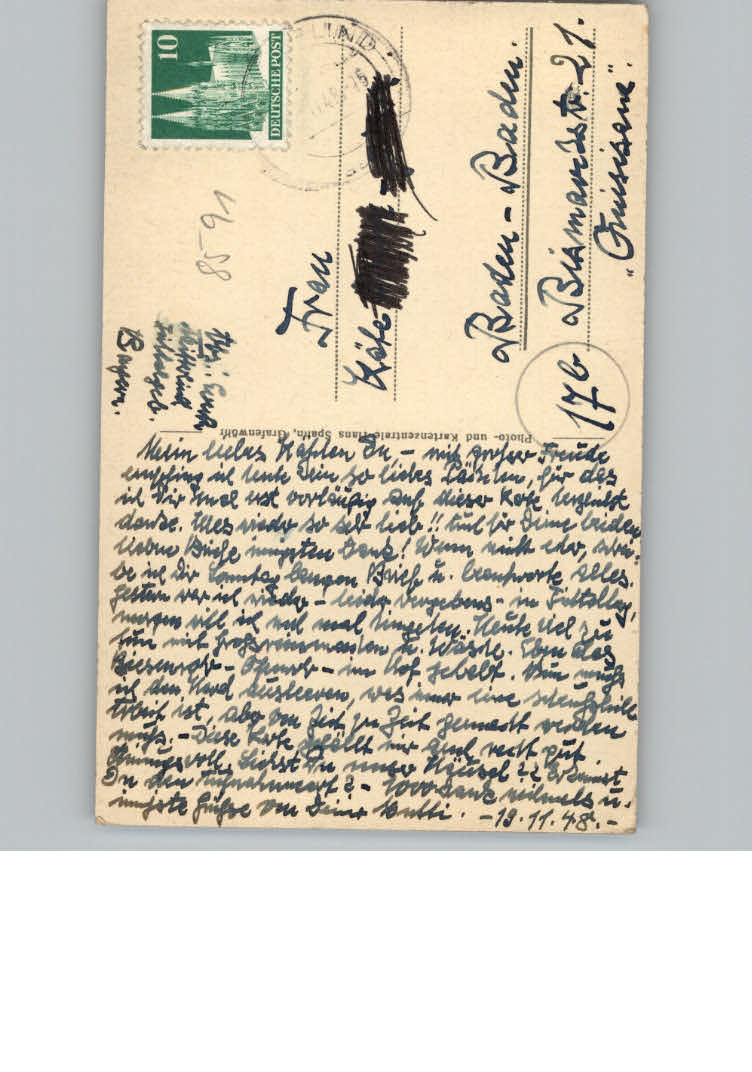 10
DEUTSCHE POST
8591
Frau
Käte
Baden-Baden.
Bismarckstr. 21.
17b
Bayern.
Photo- und Kartenzentrale Hans Spahn, Grafenwöhr
Mein liebes Du – mit großer Freude
empfing ich heute Dein so liebes für das
ich Dir erst vorläufig auf dieser Karte
danke. Alles wieder so sehr lieb!! Und für Deine beiden
lieben Briefe innigsten Dank! Wenn nicht eher, schrei-
be ich Dir Sonntag langen Brief u. beantworte Alles.
Gestern war ich wieder – leider vergebens – in
morgen will ich noch mal hingehen. Heute viel zu
tun mit Großreinemachen u. Wäsche. Eben das
– – im Hof geholt. Nun muß
ich den Herd ausleeren, was immer eine
Arbeit ist, aber von Zeit zu Zeit gemacht werden
muß. – Diese Karte gefällt mir auch recht gut.
Stimmungsvoll. Siehst Du unser Häusel?? Erkennst
Du den ? – 1000 Dank vielmals u.
innigste Grüße von Deiner Mutti. – 19.11.48. –